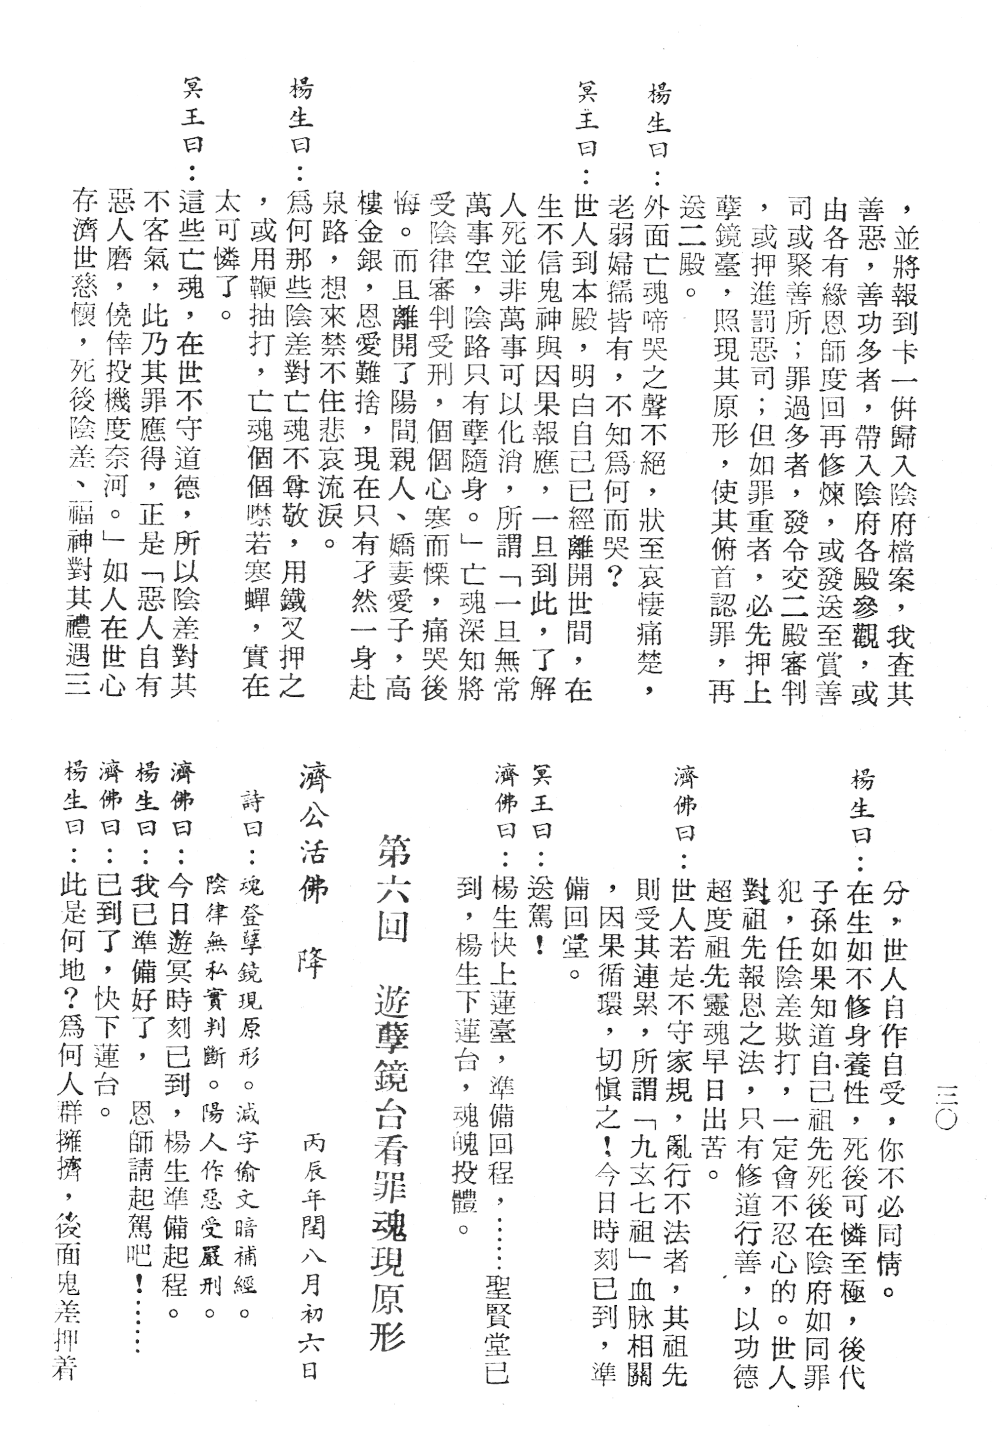 三〇
，並將報到卡一併歸入陰府檔案，我查其
善惡，善功多者，帶入陰府各殿參觀，或
由各有緣恩師度回再修煉，或發送至賞善
司或聚善所；罪過多者，發令交二殿審判
，或押進罰惡司；但如罪重者，必先押上
孽鏡臺，照現其原形，使其俯首認罪，再
送二殿。
楊生曰：外面亡魂啼哭之聲不絕，狀至哀悽痛楚，
老弱婦孺皆有，不知爲何而哭？
冥王曰：世人到本殿，明白自己已經離開世間，在
生不信鬼神與因果報應，一旦到此，了解
人死並非萬事可以化消，所謂「一旦無常
萬事空，陰路只有孽隨身。」亡魂深知將
受陰律審判受刑，個個心寒而慄，痛哭後
悔。而且離開了陽間親人、嬌妻愛子，高
樓金銀，恩愛難捨，現在只有孑然一身赴
泉路，想來禁不住悲哀流淚。
楊生曰：爲何那些陰差對亡魂不尊敬，用鐵叉押之
，或用鞭抽打，亡魂個個噤若寒蟬，實在
太可憐了。
冥王曰：這些亡魂，在世不守道德，所以陰差對其
不客氣，此乃其罪應得，正是「惡人自有
惡人磨，僥倖投機度奈河。」如人在世心
存濟世慈懷，死後陰差、福神對其禮遇三
分，世人自作自受，你不必同情。
楊生曰：在生如不修身養性，死後可憐至極，後代
子孫如果知道自己祖先死後在陰府如同罪
犯，任陰差欺打，一定會不忍心的。世人
對祖先報恩之法，只有修道行善，以功德
超度祖先靈魂早日出苦。
濟佛曰：世人若是不守家規，亂行不法者，其祖先
則受其連累，所謂「九玄七祖」血脉相關
，因果循環，切愼之！今日時刻已到，準
備回堂。
冥王曰：送駕！
濟佛曰：楊生快上蓮臺，準備回程，……聖賢堂已
到，楊生下蓮台，魂魄投體。
第六回　遊孽鏡台看罪魂現原形
濟公活佛　降　丙辰年閏八月初六日
詩曰：魂登孽鏡現原形。減字偷文暗補經。
陰律無私實判斷。陽人作惡受嚴刑。
濟佛曰：今日遊冥時刻已到，楊生準備起程。
楊生曰：我已準備好了，　恩師請起駕吧！……
濟佛曰：已到了，快下蓮台。
楊生曰：此是何地？爲何人群擁擠，後面鬼差押着